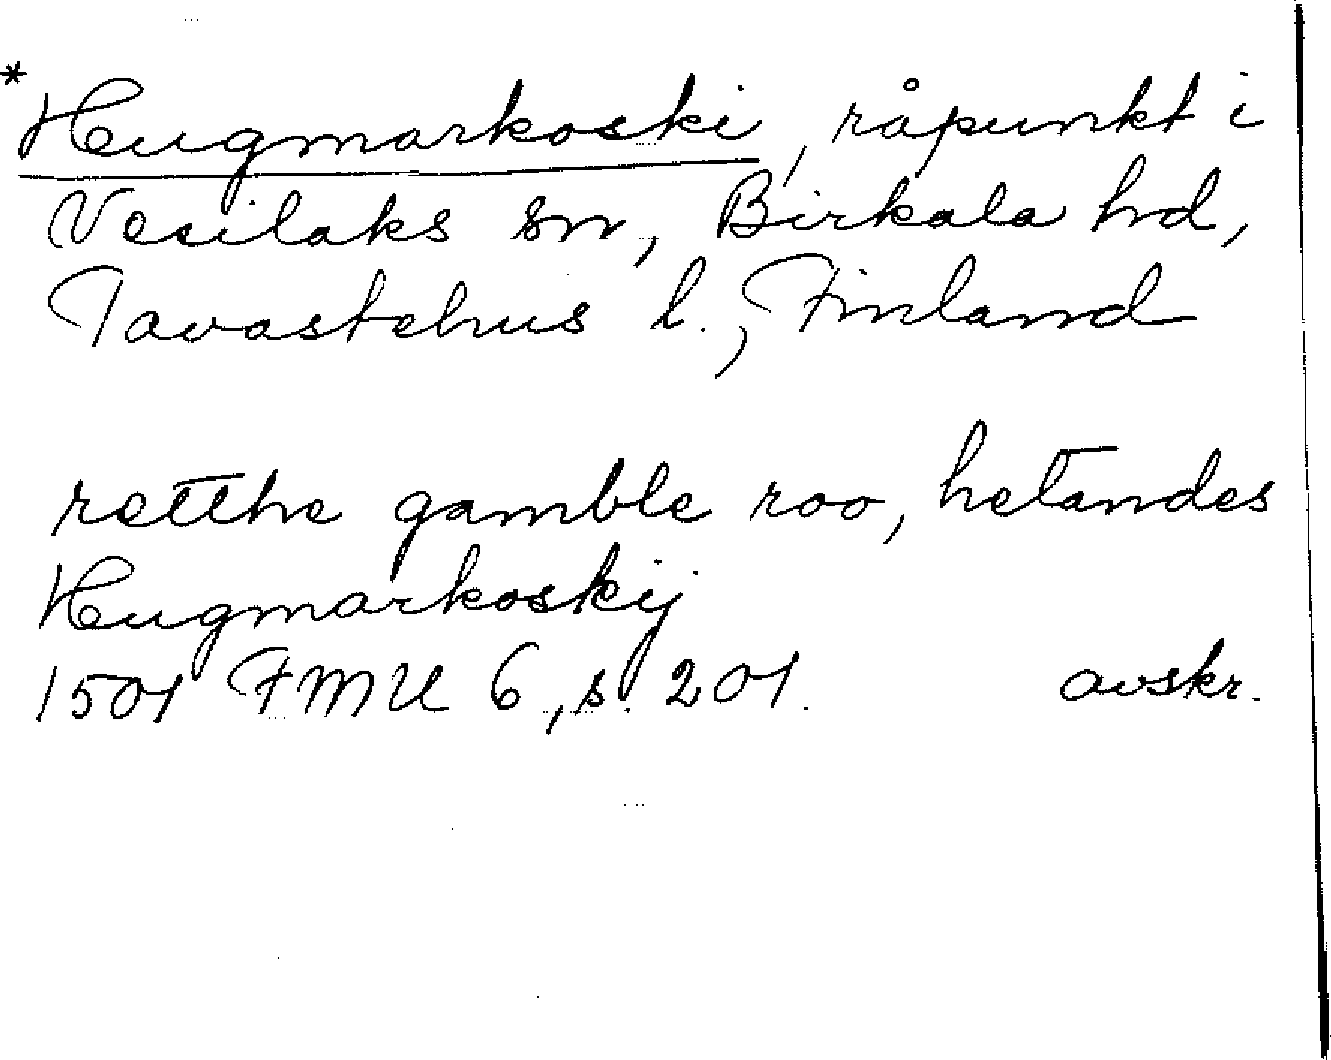 *Heugmarkoski, råpunkt i
Vesilaks sn, Birkala hd,
Tavastehus l., Finland
retthe gamble roo, hetandes
Heugmarkoskij
1501 FMU 6, s. 201. avskr.